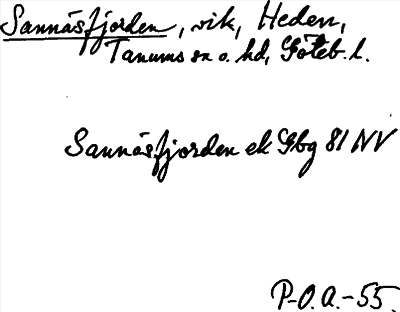 Sannäsfjorden, vik, Heden,
Tanums sn o. hd, Göteb. l.
Sannäsfjorden ek Gbg 81 NV
P-O.A.-55.